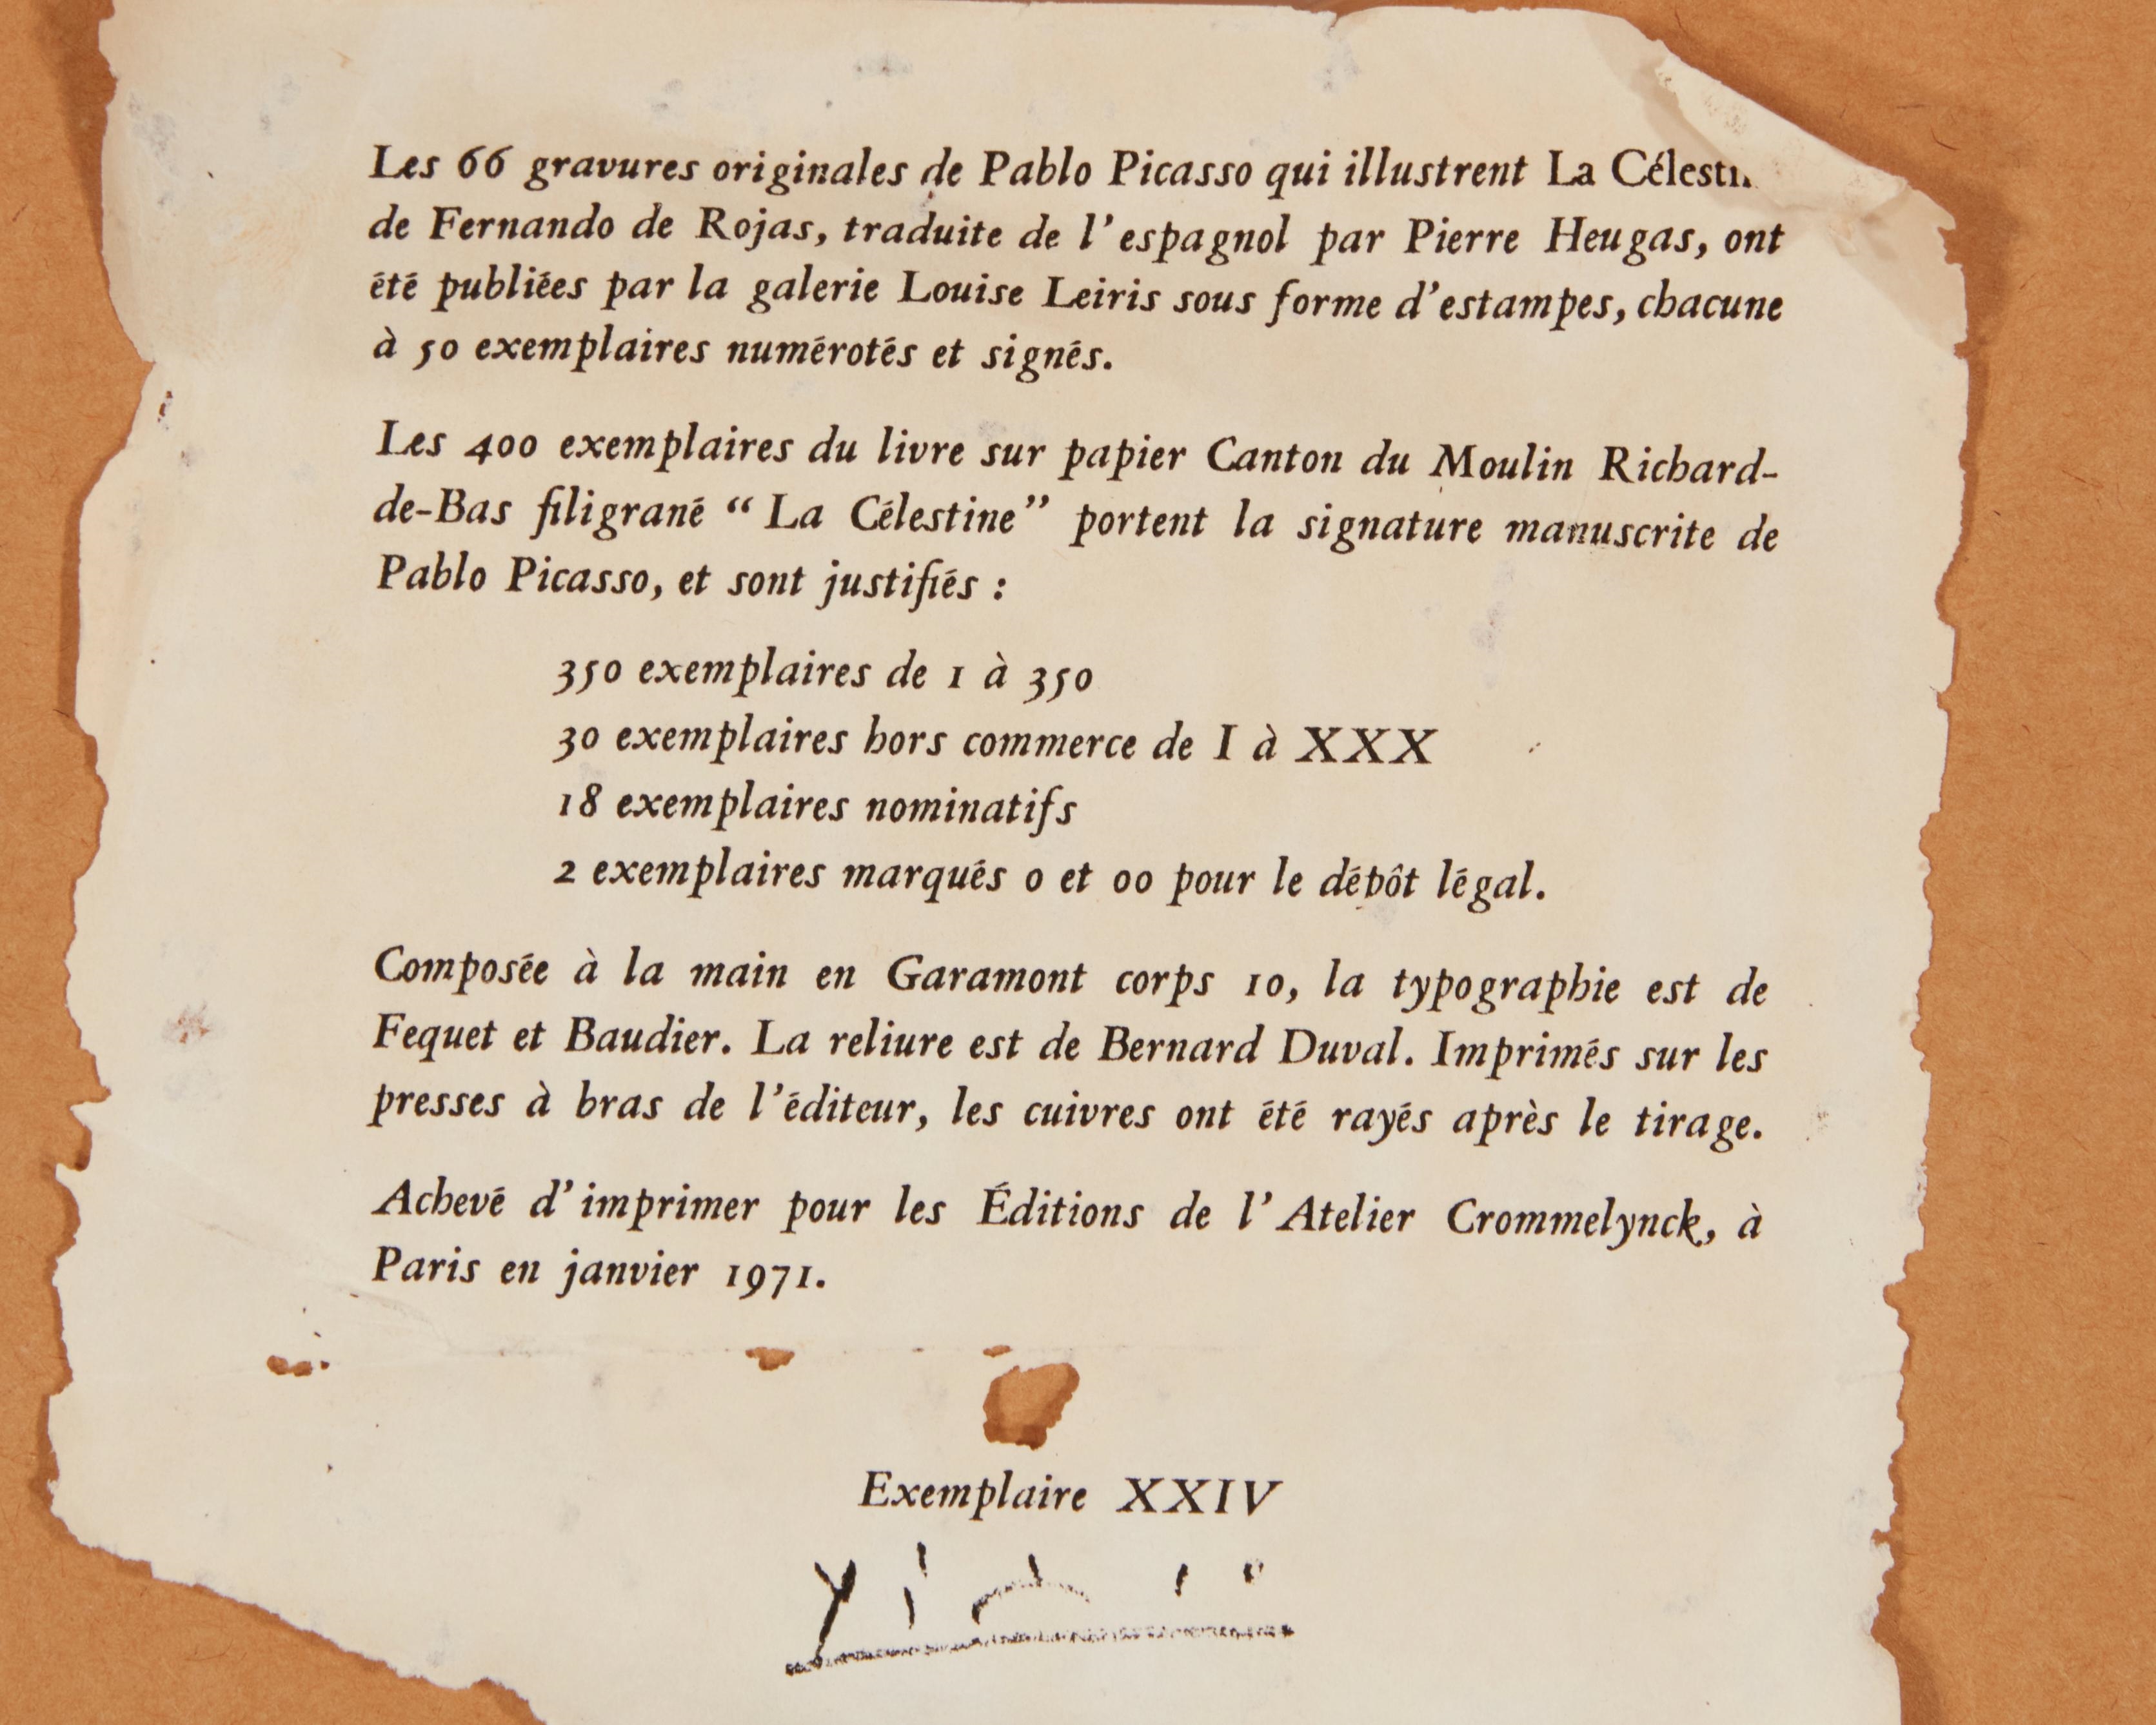 Les 66 gravures originales de Pablo Picasso qui illustrent La
de Fernando de Rojas, traduite de l'espagnol par Pierre Heugas, ont
été publiées par la galerie Louise Leiris sous forme d'estampes, chacune
à 50 exemplaires numérotés et signés.
Les 400 exemplaires du livre sur papier Canton du Moulin Richard-
de-Bas filigrané “ La Célestine” portent la signature manuscrite de
Pablo Picasso, et sont justifiés :
350 exemplaires de 1 à 350
30 exemplaires hors commerce de I à XXX
18 exemplaires nominatifs
2 exemplaires marqués 0 et 00 pour le dépôt légal.
Composée à la main en Garamont corps 10, la typographie est de
Fequet et Baudier. La reliure est de Bernard Duval. Imprimés sur les
presses à bras de l'éditeur, les cuivres ont été rayés après le tirage.
Achevé d'imprimer pour les Éditions de l'Atelier Crommelynck, à
Paris en janvier 1971.
Exemplaire XXIV